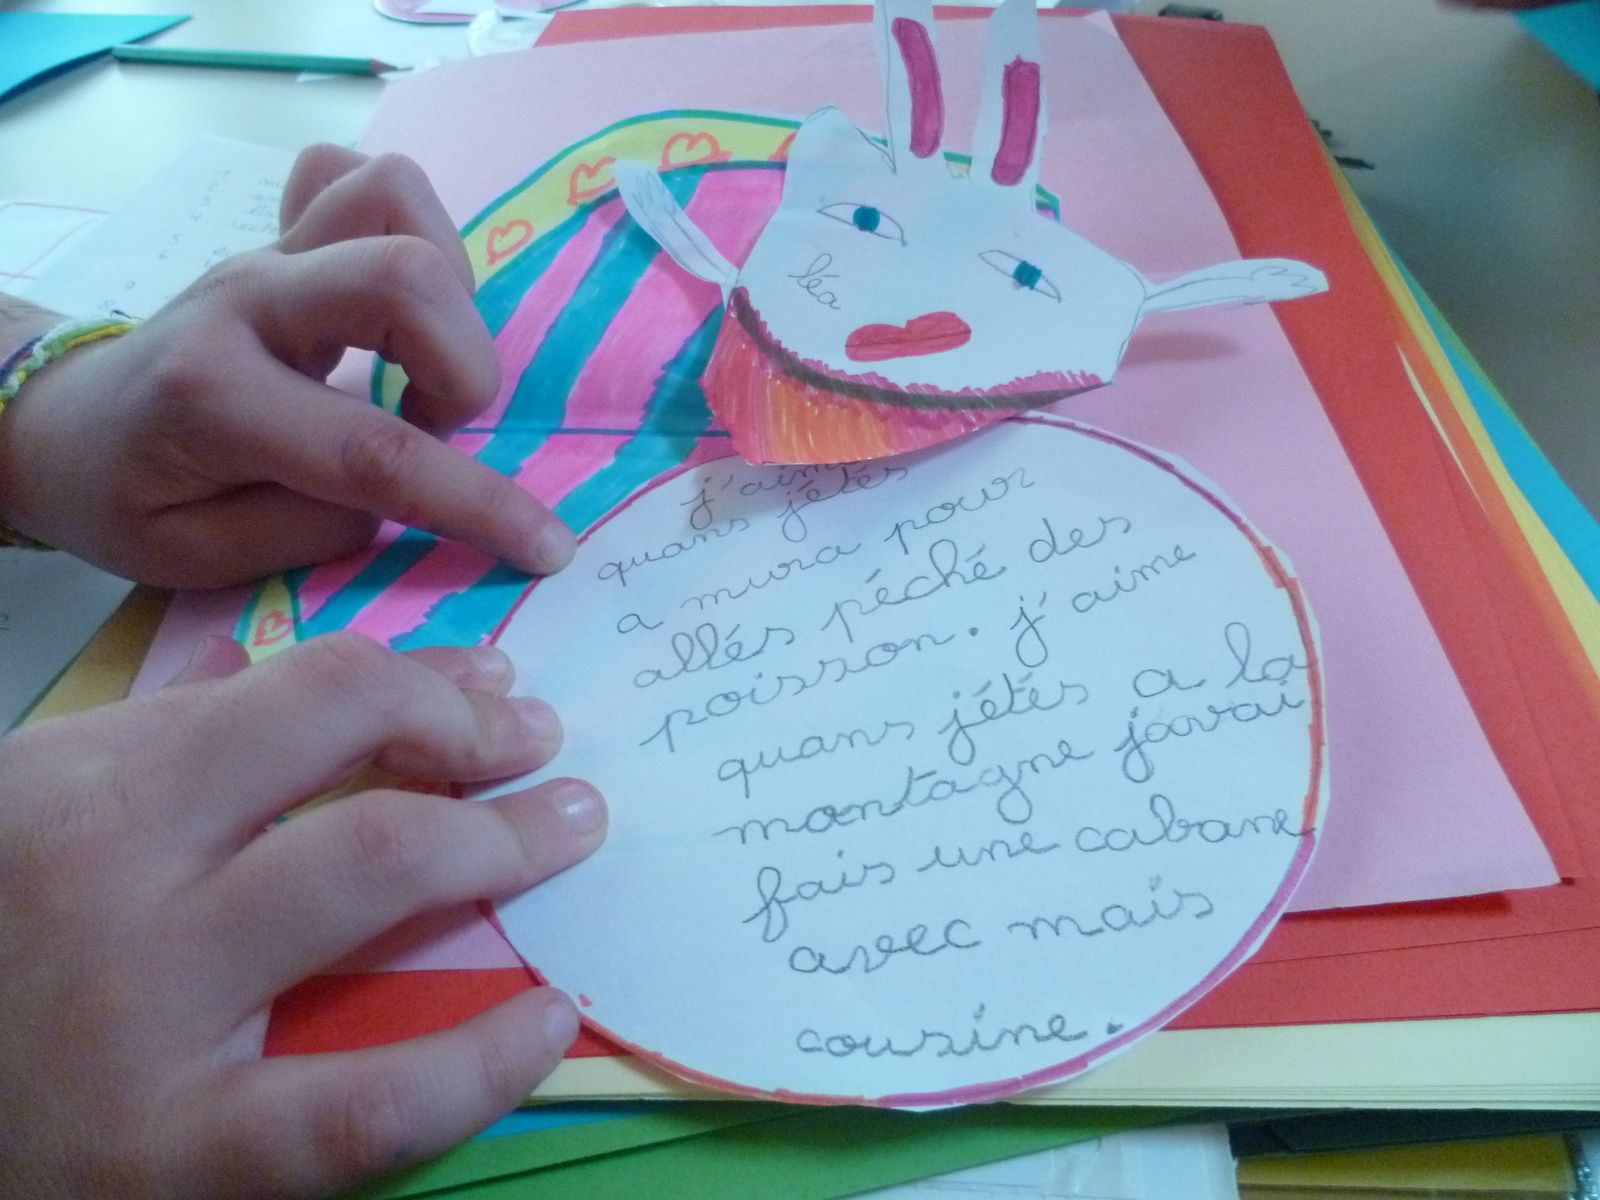 léa
j'aim
quans jétés
a mura pour
allés péché des
poisson. j'aime
quans jétés a la
montagne javai
fais une cabane
avec mais
cousine.